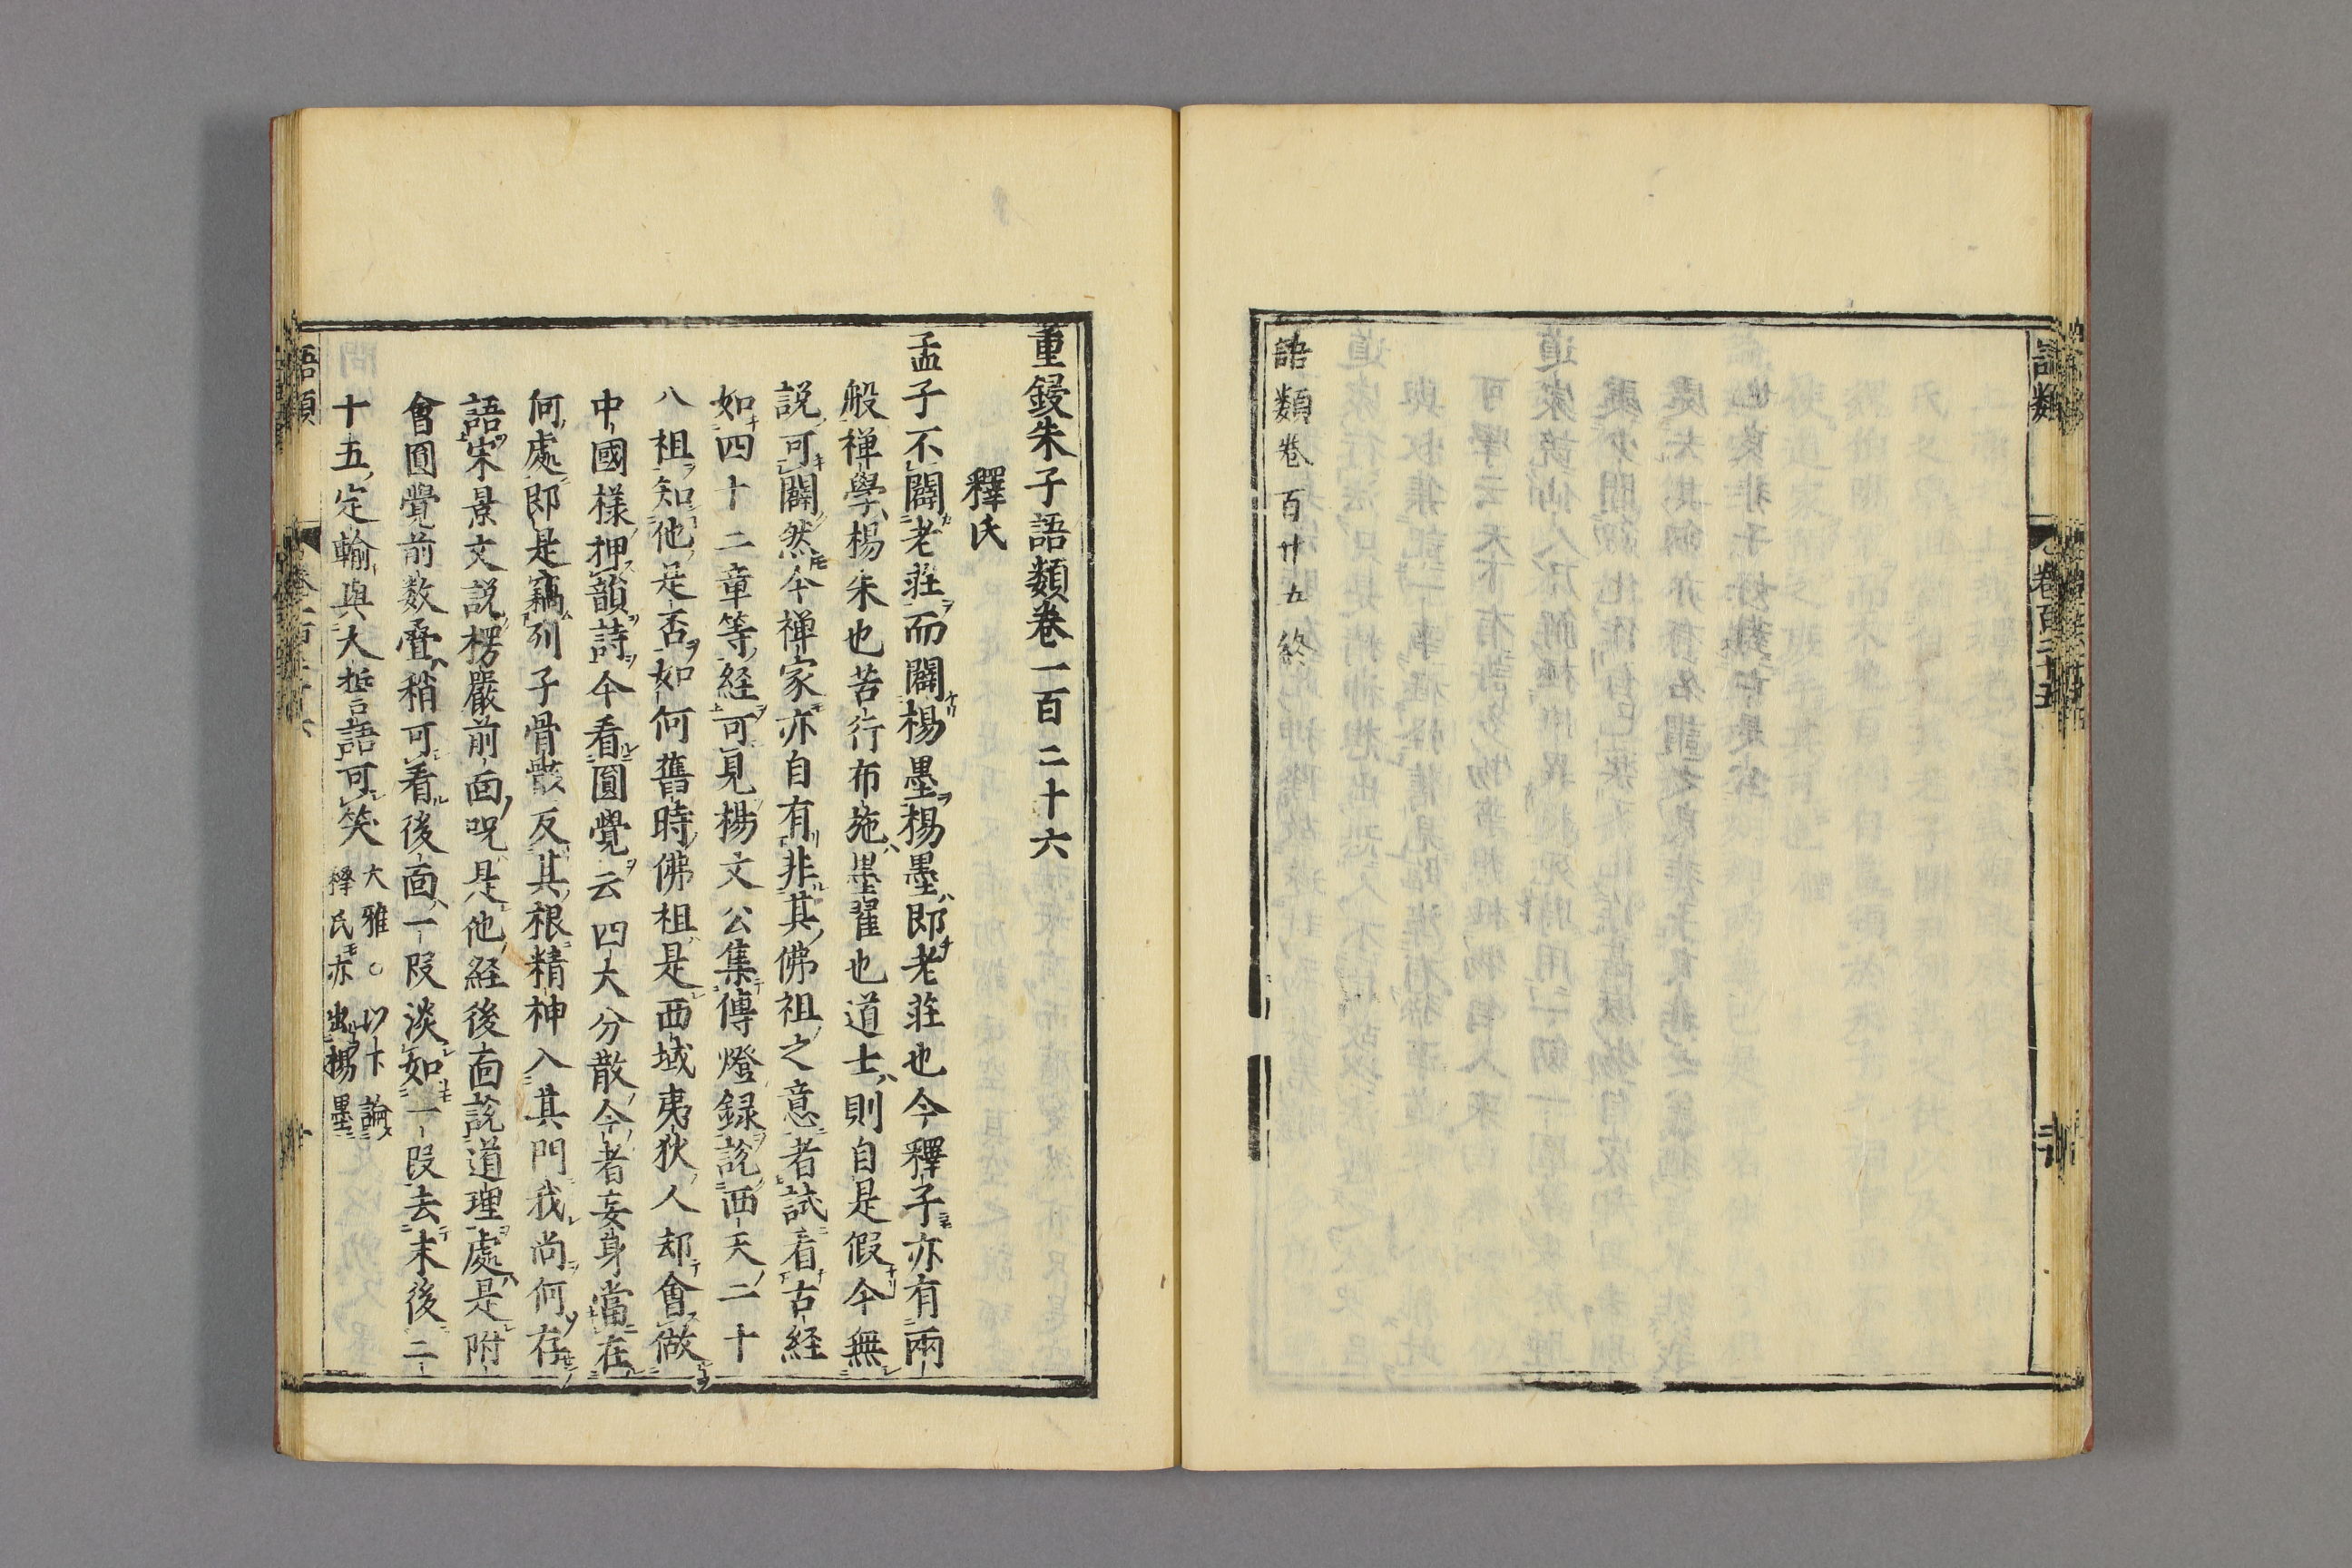 語類
卷百二十五
語類卷百廿五終
重鋟朱子語類卷一百二十六
釋氏
孟子不闢老莊而闢楊墨楊墨即老莊也今釋子亦有兩
般禅學楊朱也苦行布施墨翟也道士則自是假今無
說可闢然今禅家亦自有非其佛祖之意者試看古経
如四十二章等経可見楊文公集傳燈録說西天二十
八祖知他是否如何舊時佛祖是西域夷狄人却會做
中國様押韻詩今看圓覺云四大分散今者妄身當在
何處即是竊列子骨骸反其根精神入其門我尚何存
語宋景文說楞嚴前面呪是他経後面說道理處是附
會圓覺前数疊稍可看後面一段淡如一段去末後二
十五定輪與大誓語可笑大雅○以下論
釋氏亦出楊墨
語類